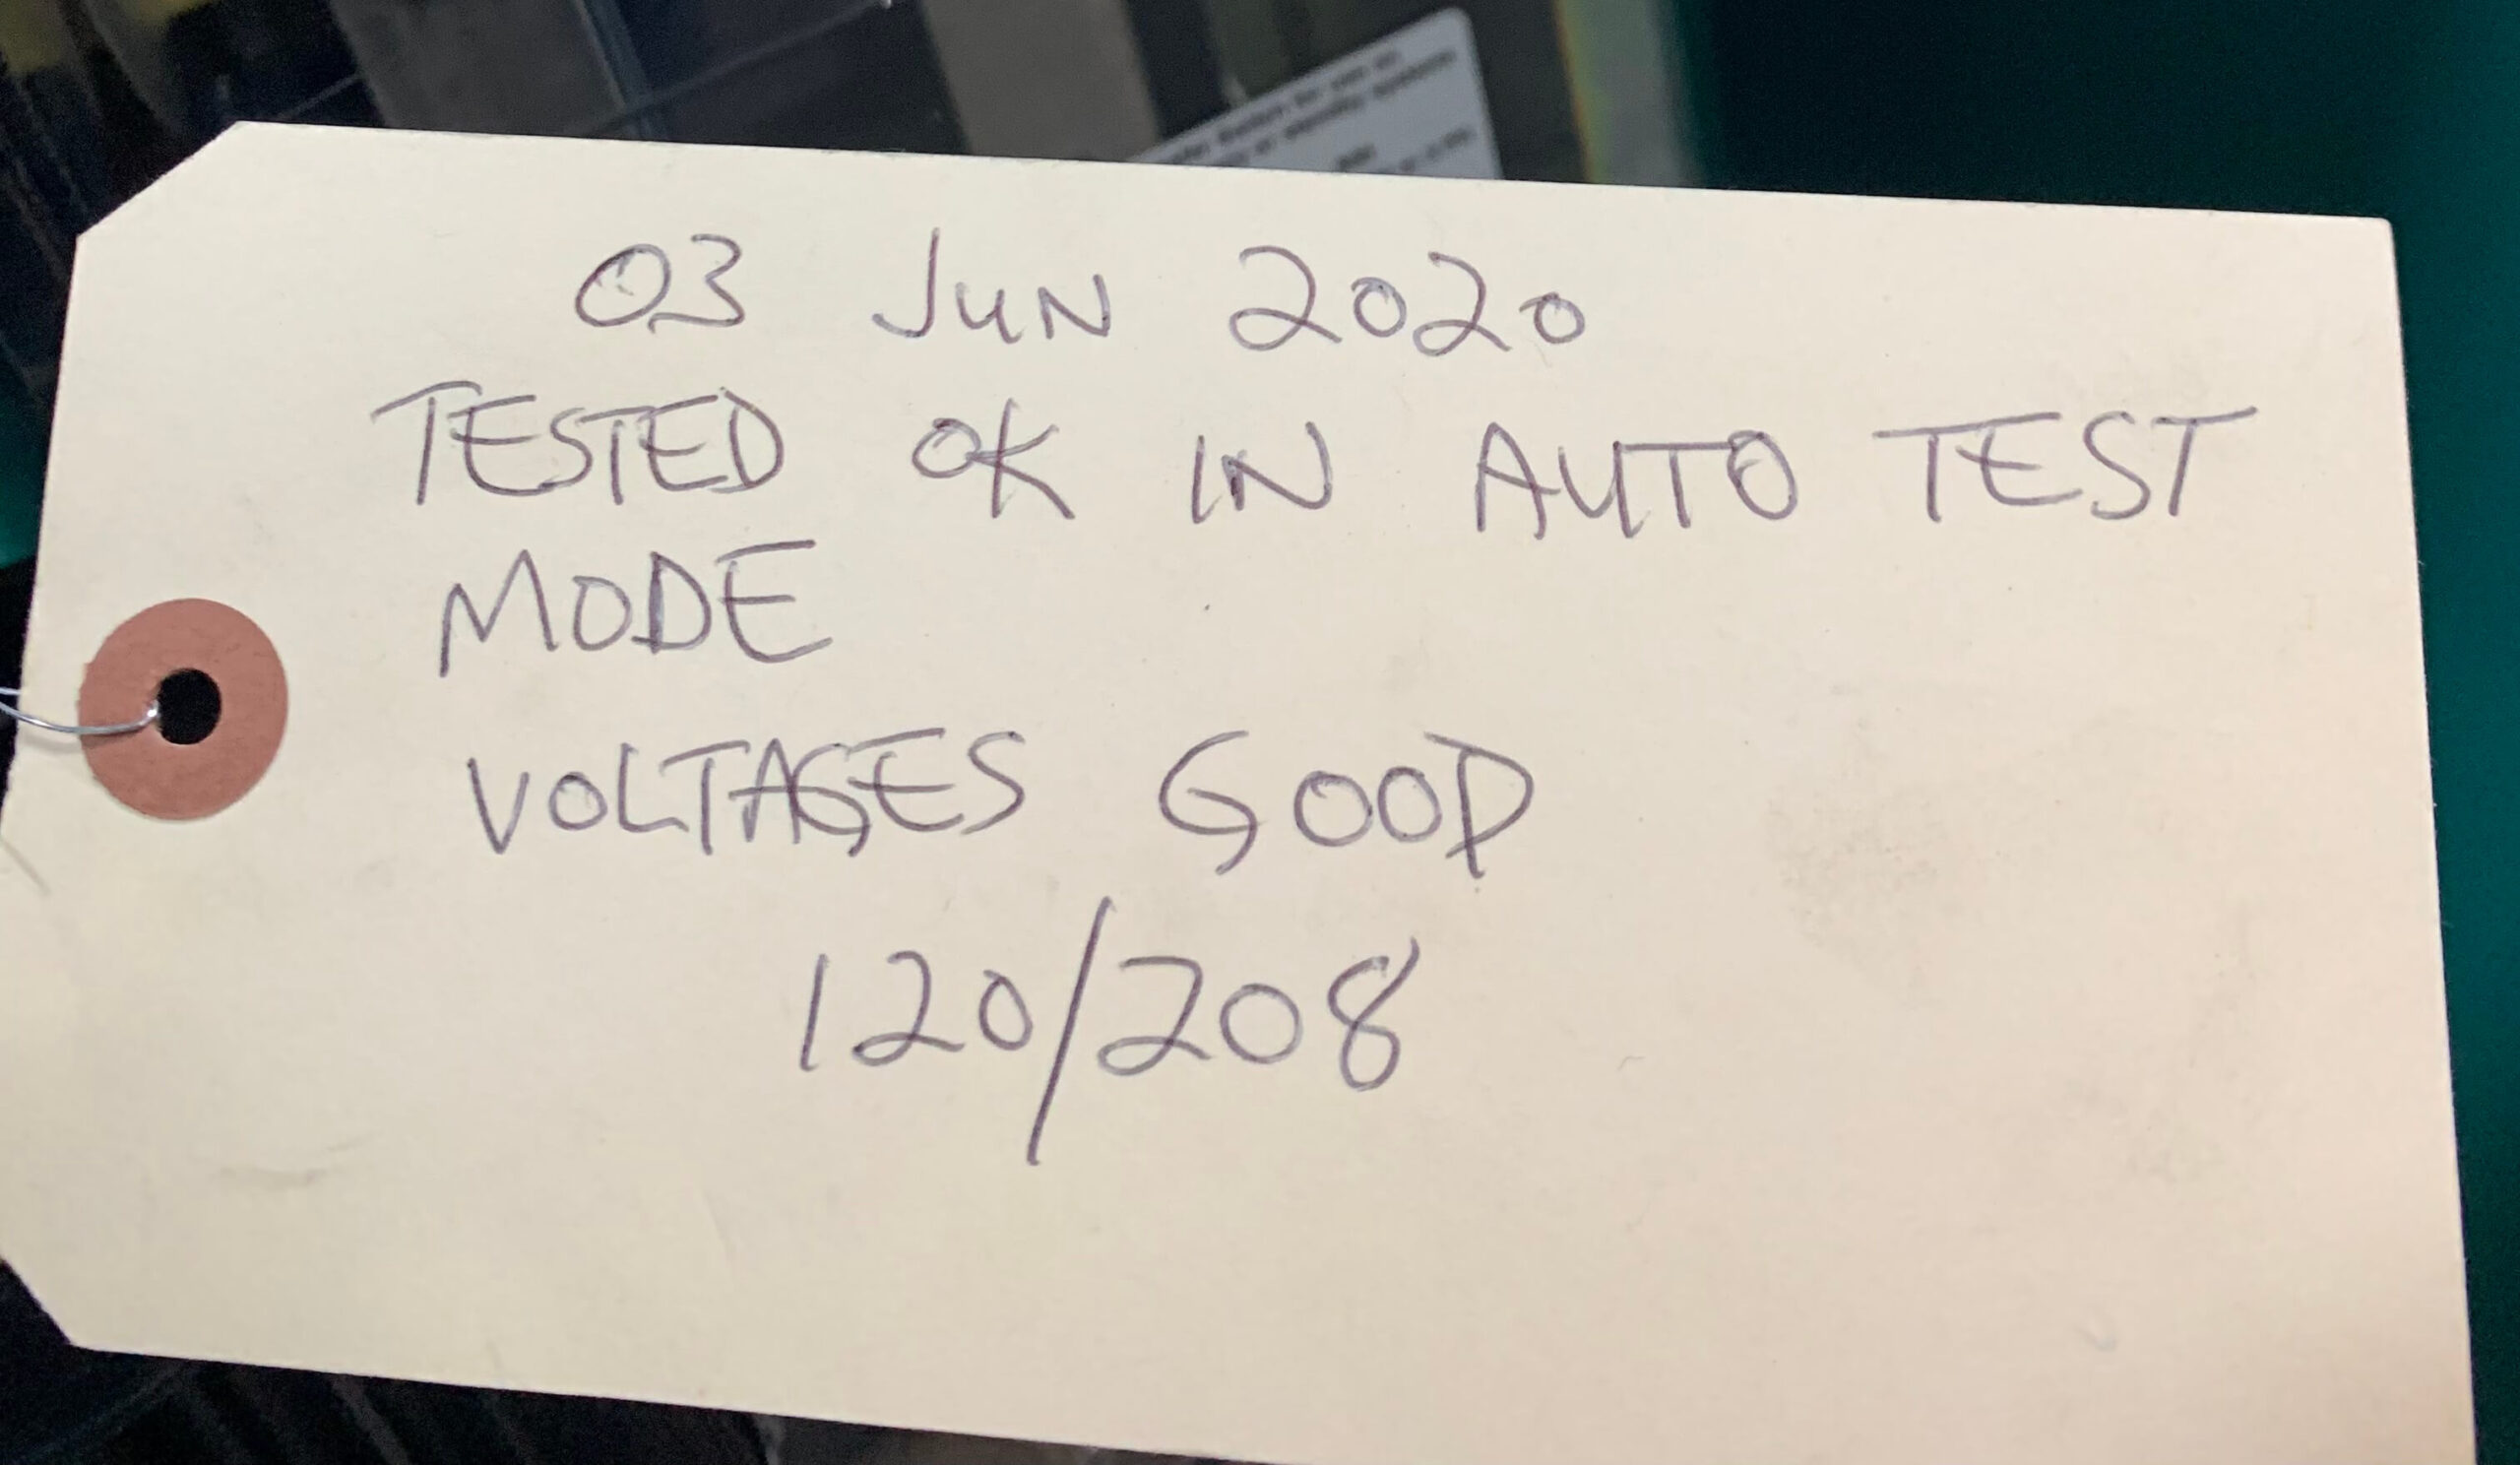 03 JUN 2020
TESTED OK IN AUTO TEST
MODE
VOLTAGES GOOD
120/208